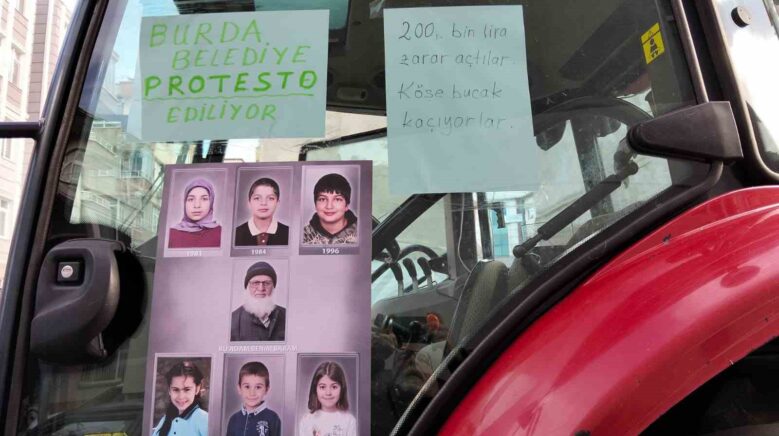 BURDA
BELEDİYE
PROTESTO
EDİLİYOR
200, bin lira
zarar açtılar.
Köşe bucak
kaçıyorlar.
1981
1984
1996
BU ADAM BENİM BABAM